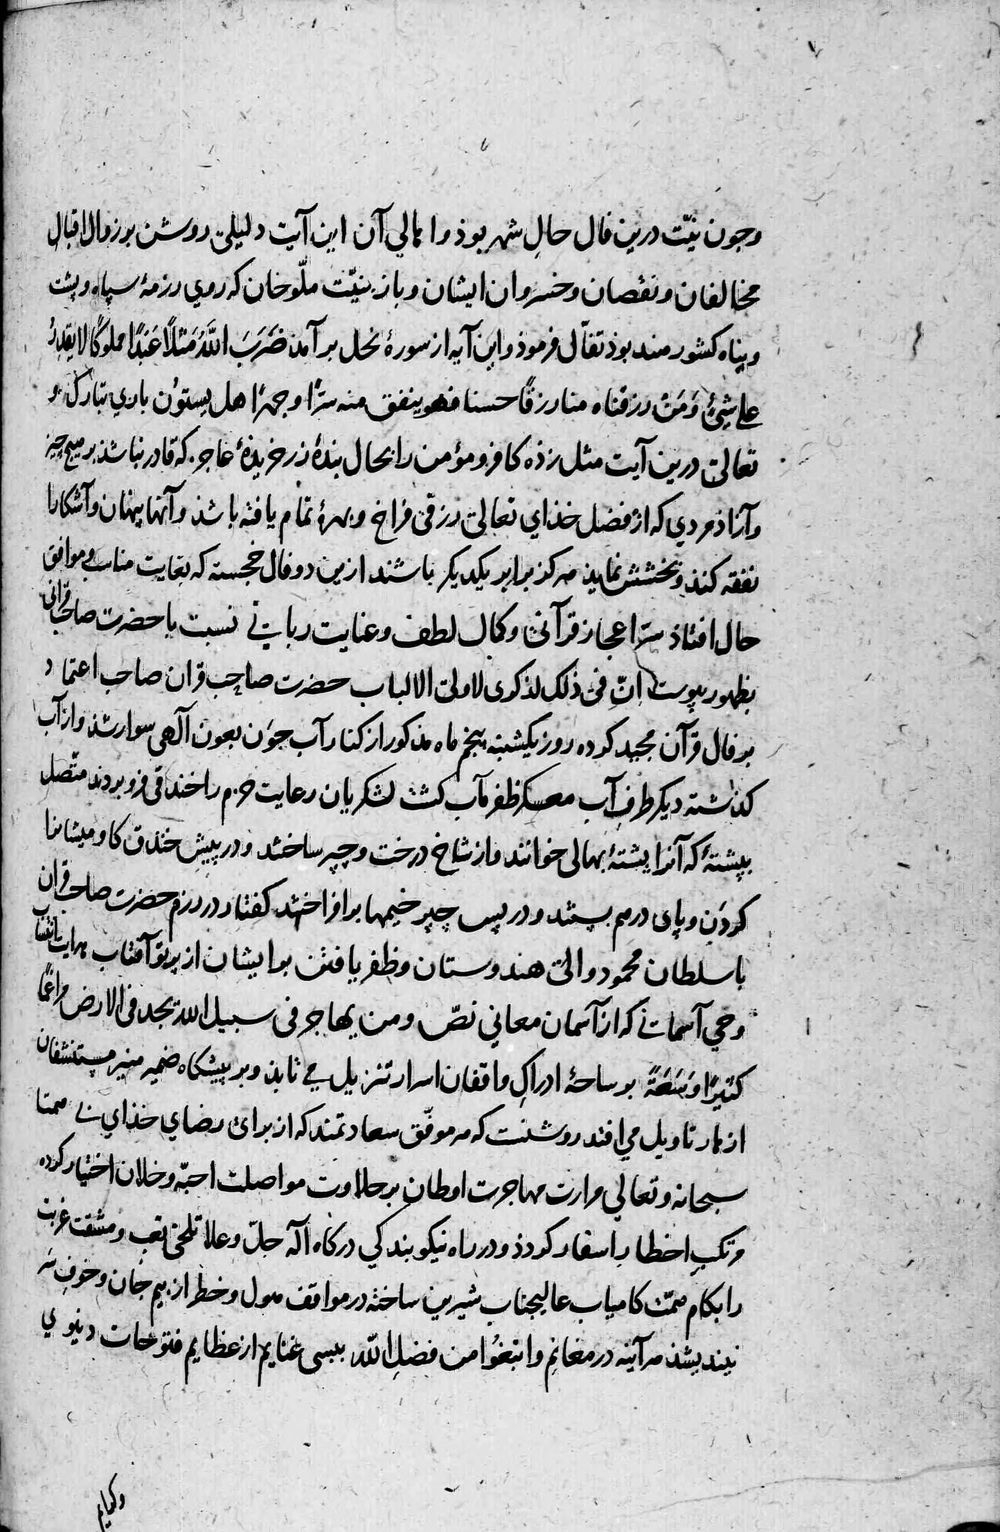 وچون نیّت درین فال حالِ شهر بوذ و اهالي آن این آیت دلیلی روشن بر زوال اقبال
مخالفان و نقصان و خسروان ایشان و باز بنیّت ملّوخان که روي رزمهٔ سپاه و پشت
و پناه کشور هند بوذ تفأّل فرموذ و این آیه از سورهٔ نحل بر آمد ضَرَبَ اللَّهُ مَثَلًا عَبْدًا مملوکًا لا یقدِرُ
علی شیٔ وَمَنْ رزقناه منا رزقًا حسنا فهو ینفق منه سرًّا و جهرًا هل یستوُن باري تبارک و
تعالی درین آیت مثل زذه کافر و مؤمن را بحال بندهٔ زر خریدهٔ عاجز که قادر نباشذ بر هیچ چیز
و آزاذ مردي که از فضل خذاي تعالی رزقی فراخ و بهرهٔ تمام یافته باشذ و آنها پنهان و آشکارا
نفقه کنذ و بخشش نمایذ هرکز برابر یکدیکر باشند ازین دو فال خجسته که بغایت مناسب و موافق
حال افتاذ سرّ اعجاز قرآنی و کمال لطف و عنایت ربانی نسبت با حضرت صاحب قرانی
بظهور پیوست اِنّ فی ذلک لذکری لاولی الالباب حضرت صاحب قران صاحب اعتماد
بر فال قرآن مجید کرده روز یکشنبه پنجم ماه مذکور از کنار آب جوَن بعون آلهی سوار شذ و از آب
کذشته دیکر طرفِ آب معسکر ظفر مآب کشت لشکریان رعایت حزم را خندقی فرو بردند متّصل
بپشتهٔ که آنرا پشتهٔ بهالی خوانند و از شاخ درخت و چپر ساختند و در پیش خندق کاومیشانرا
کردَن و پای درهم بستند و در پس چپر خیمها بر افراختند کفتار در رزم حضرت صاحب قران
با سلطان محمود والی هندوستان و ظفر یافتن بر ایشان از پرتو آفتاب هدایت انتساب
وحي آسمانی که از آسمان معاني نصّ و من یهاجر فی سبیل الله یجد فی الارض مراغمًا
کثیرًا وَسَعَةً بر ساحهٔ ادراکِ واقفان اسرار تنزیل می تابذ و بر پیشکاه ضمیر منیر مستنشقان
ازهار تاویل می افتد روشنست که هر موفّق سعادتمند که از برای رضاي خذاي بی همتا
سبحانه و تعالي مرارت مهاجرت اوطان بر حلاوت مواصلت احبّه و خلان اختیار کرده
مرتکب اخطار اسفار کردذ و در راه نیکو بندکي درکاه اله جلّ و علا تلخی تعب و مشقت غربت
را بکام همّت کامیاب عالیجناب شیرین ساخته در مواقف هول و خطر از بیم جان و خوفِ سر
نیندیشذ هر آینه در مغانِم وابتغُوا من فضل الله بسی غنایم از عظایم فتوحات دنیوي
وکرایم